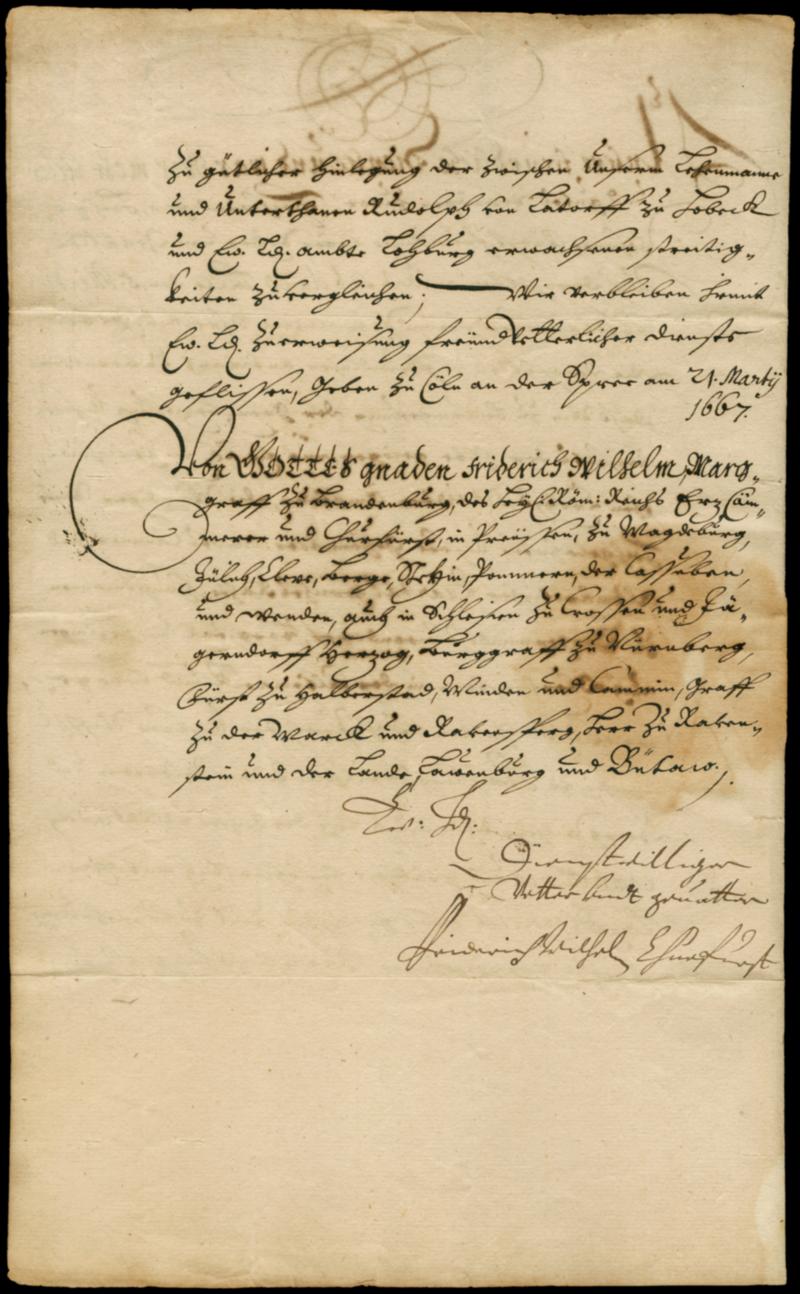 Zu gütlicher hinlegung der zwischen Unserm Lehenmanne
und Unterthanen Rudolph von Latorff zu Lobeck
und Ew. Ld. ambte Lohburg erwachsenen streitig-
keiten zuvergleichen; Wir verbleiben hirmit
Ew. Ld. zuerweisung freundtvetterlicher dienste
geflissen, Geben zu Cöln an der Spree am 21. Martij
1667.
Von GOTTES gnaden Friderich Wilhelm, Marg-
graff zu Brandenburg, des Heyl. Röm: Reichs Ertz Cäm-
merer und Churfürst, in Preüssen, zu Magdeburg,
Jülich, Cleve, Berge, Stettin, Pommern, der Cassuben,
und Wenden, auch in Schlesien zu Crossen und Jä-
gerndorff Hertzog, Burggraff zu Nürnberg,
Fürst zu Halberstad, Minden und Cammin, Graff
zu der Marck und Ravensperg, Herr zu Raven-
stein und der Lande Lauenburg und Bütaw.
Ew: Ld:
Dienstwilliger
Vetter undt gevatter
Friderich Wilhelm Churfürst